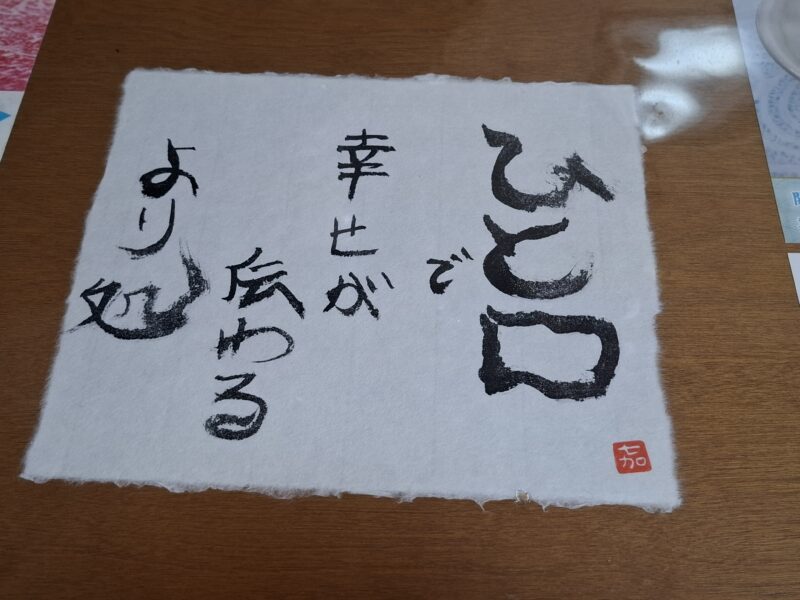 ひと口
で
幸せが
伝わる
より処